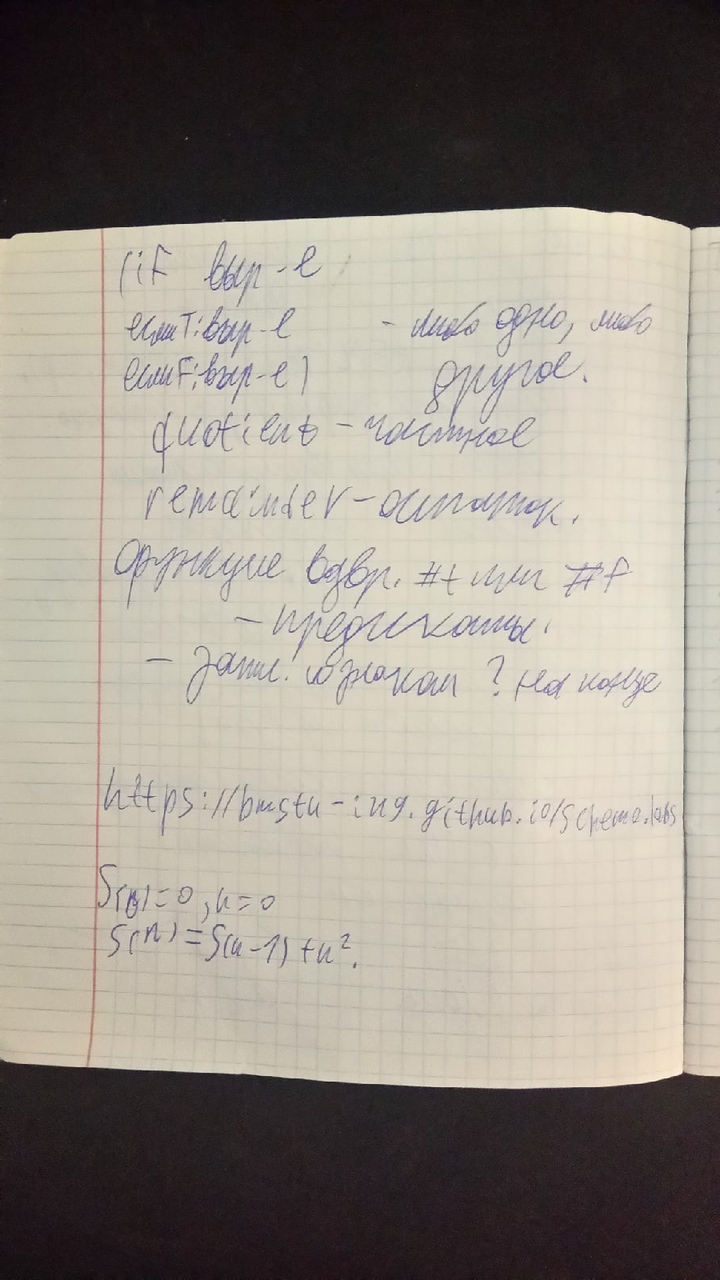 (if выр-е
если T: выр-е - либо одно, либо
если F: выр-е) другое.
quotient - частное
remainder - остаток.
функции возвр. #t или #f
- предикаты.
- зап. со знаком ? на конце
https://bmstu-iu9.github.io/scheme-labs
S(n)=0, n=0
S(n)=S(n-1)+n².